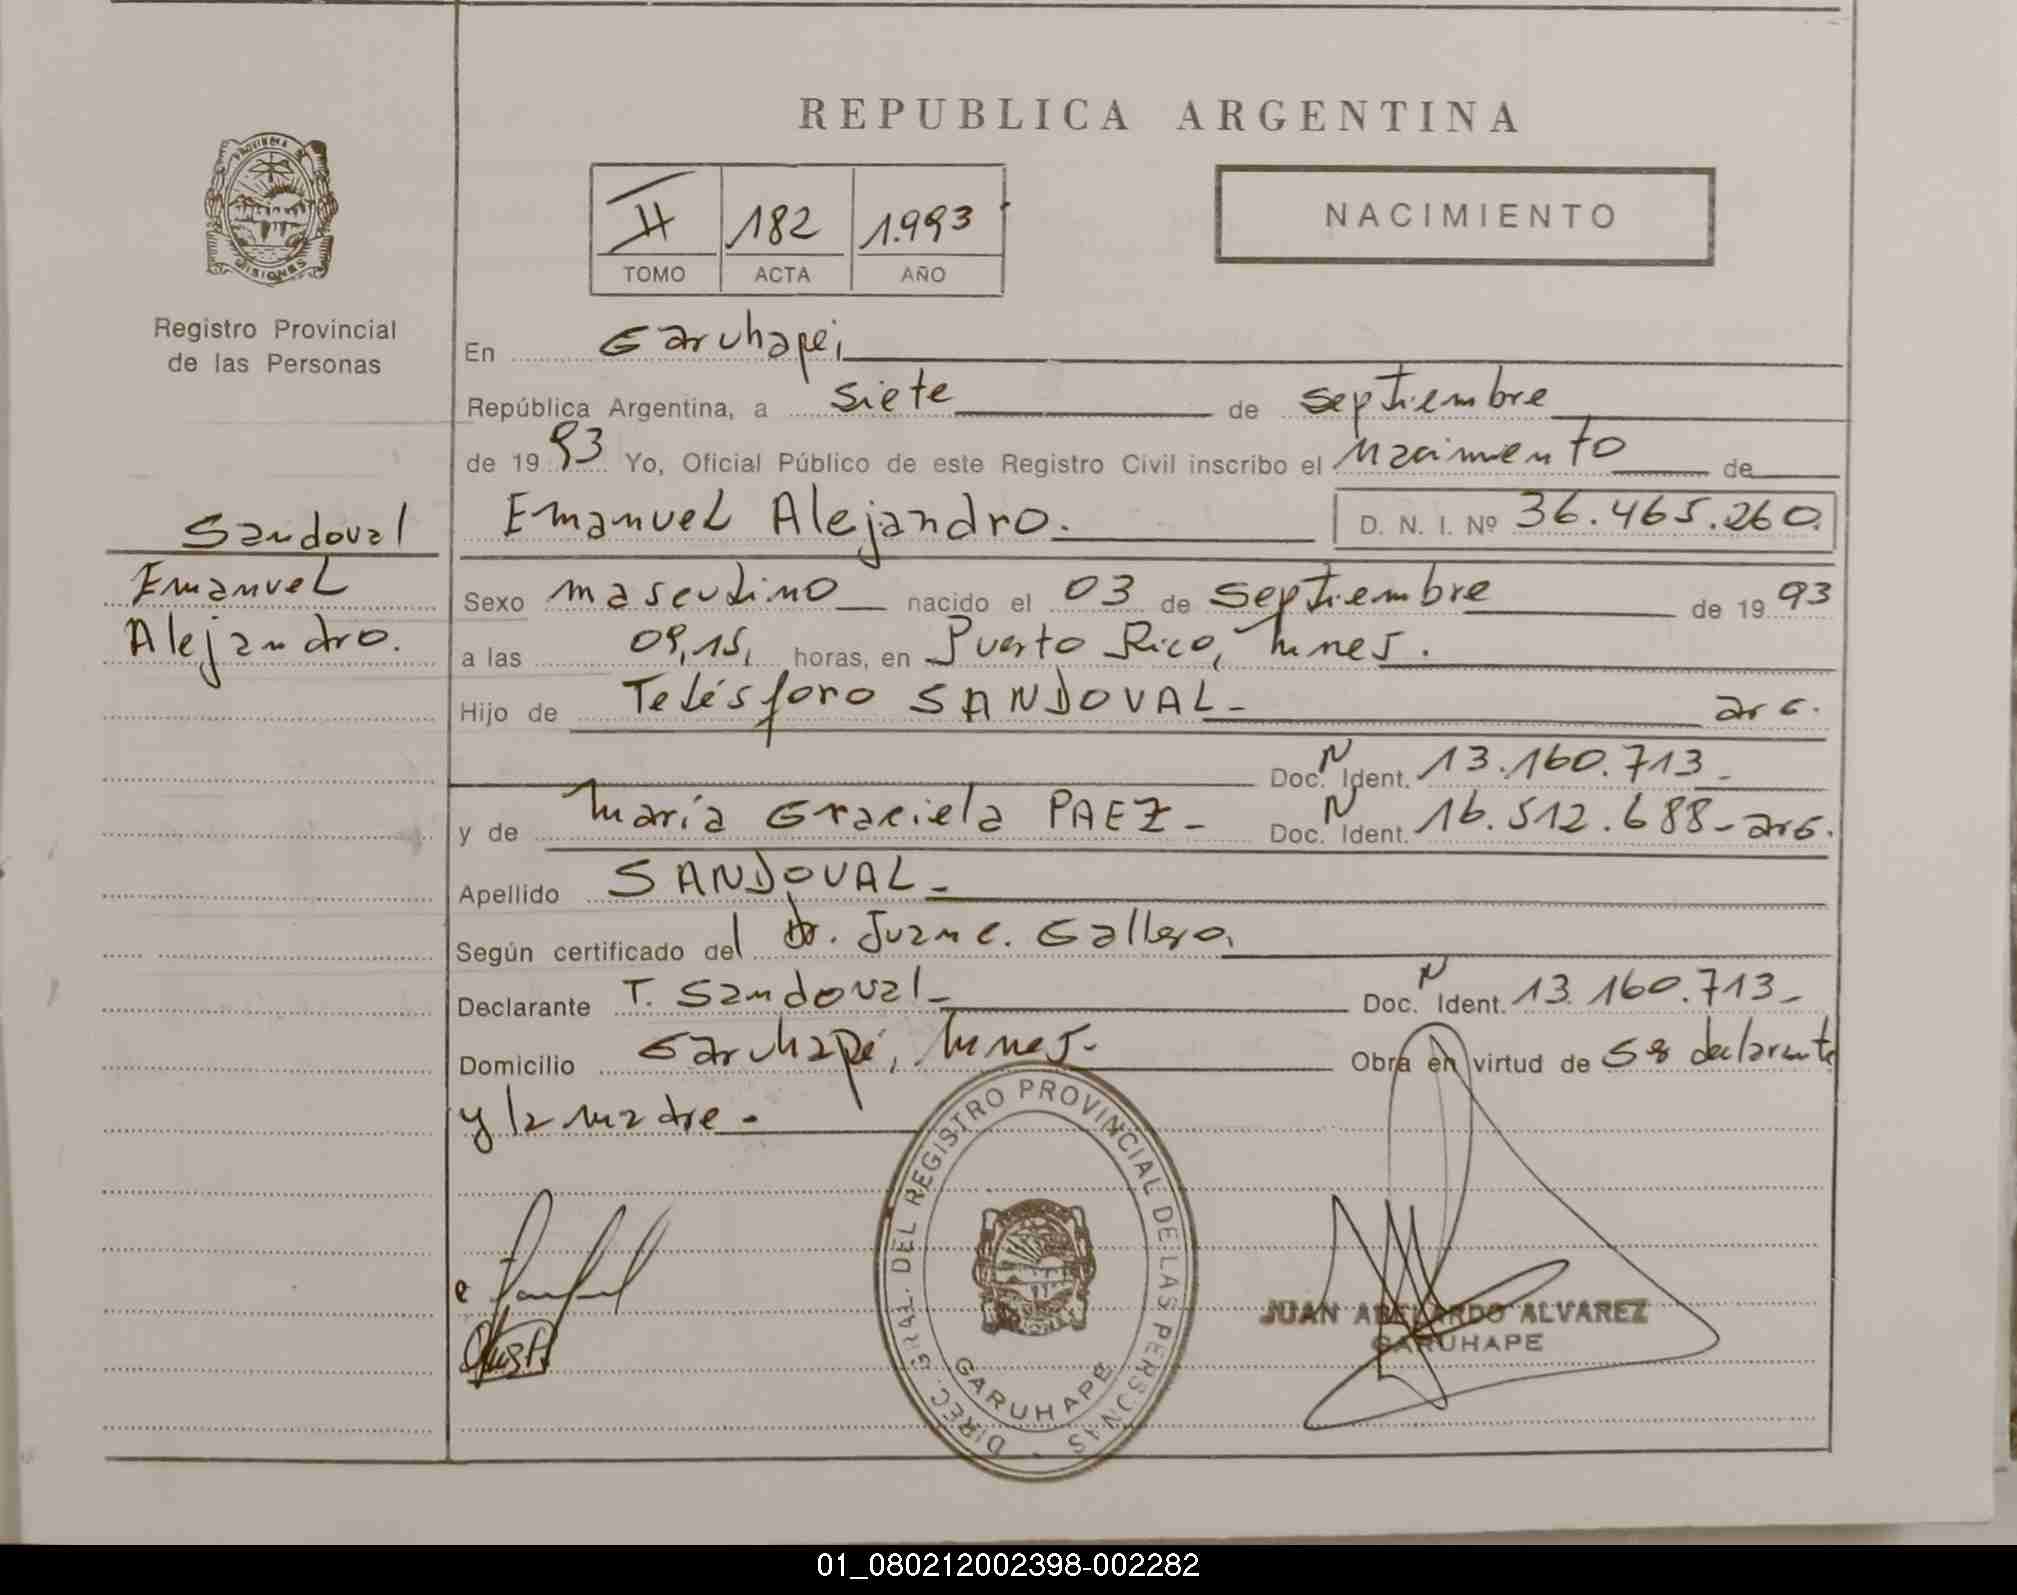 REPUBLICA ARGENTINA
PROVINCIA DE MISIONES
Registro Provincial
de las Personas
II 182 1.993
TOMO ACTA AÑO
NACIMIENTO
En Garuhapé,
República Argentina, a siete de septiembre
de 1993 Yo, Oficial Público de este Registro Civil inscribo el Nacimiento de
Emanuel Alejandro. D. N. I. Nº 36.465.260.
Sandoval
Emanuel
Alejandro.
Sexo masculino nacido el 03 de septiembre de 1993
a las 09,15, horas, en Puerto Rico, Mnes.
Hijo de Telésforo SANDOVAL- arg.
Doc. N Ident. 13.160.713-
y de María Graciela PAEZ- Doc. N Ident. 16.512.688-arg.
Apellido SANDOVAL-
Según certificado del Dr. Juan C.
Declarante T. Sandoval- Doc. N Ident. 13.160.713-
Domicilio Garuhapé, Mnes.- Obra en virtud de ser declarante
y la madre.-
DIREC. GRAL. DEL REGISTRO PROVINCIAL DE LAS PERSONAS
GARUHAPE
JUAN ABELARDO ALVAREZ
GARUHAPE
01_080212002398-002282